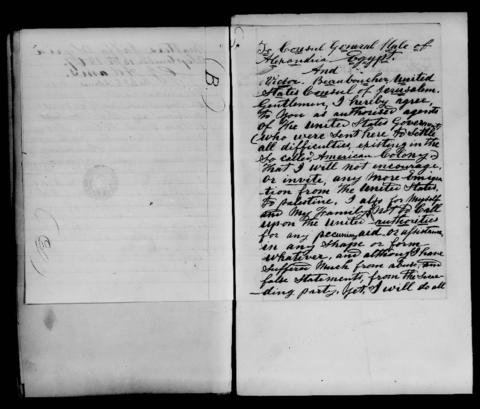 (B.)
To Consul General Hale of
Alexandria Egypt.
And
Victor. Beauboucher United
States Consul of Jerusalem.
Gentlemen, I hereby agree,
To You as authorised agents
Of The United States Government
(who were sent here To Settle
all difficulties, existing in the
So called, American Colony)
That I will not encourage,
or invite, any More Emigra
tion from The United States,
To palestine, I also for Myself
and My Family, Not To Call
upon the United authorities
for any pecuniary aid or assistance,
in any Shape or form
whatever, and although I have
Suffered Much from abuse, and
false Statements, from the Sece-
-ding party, Yet, I will do all